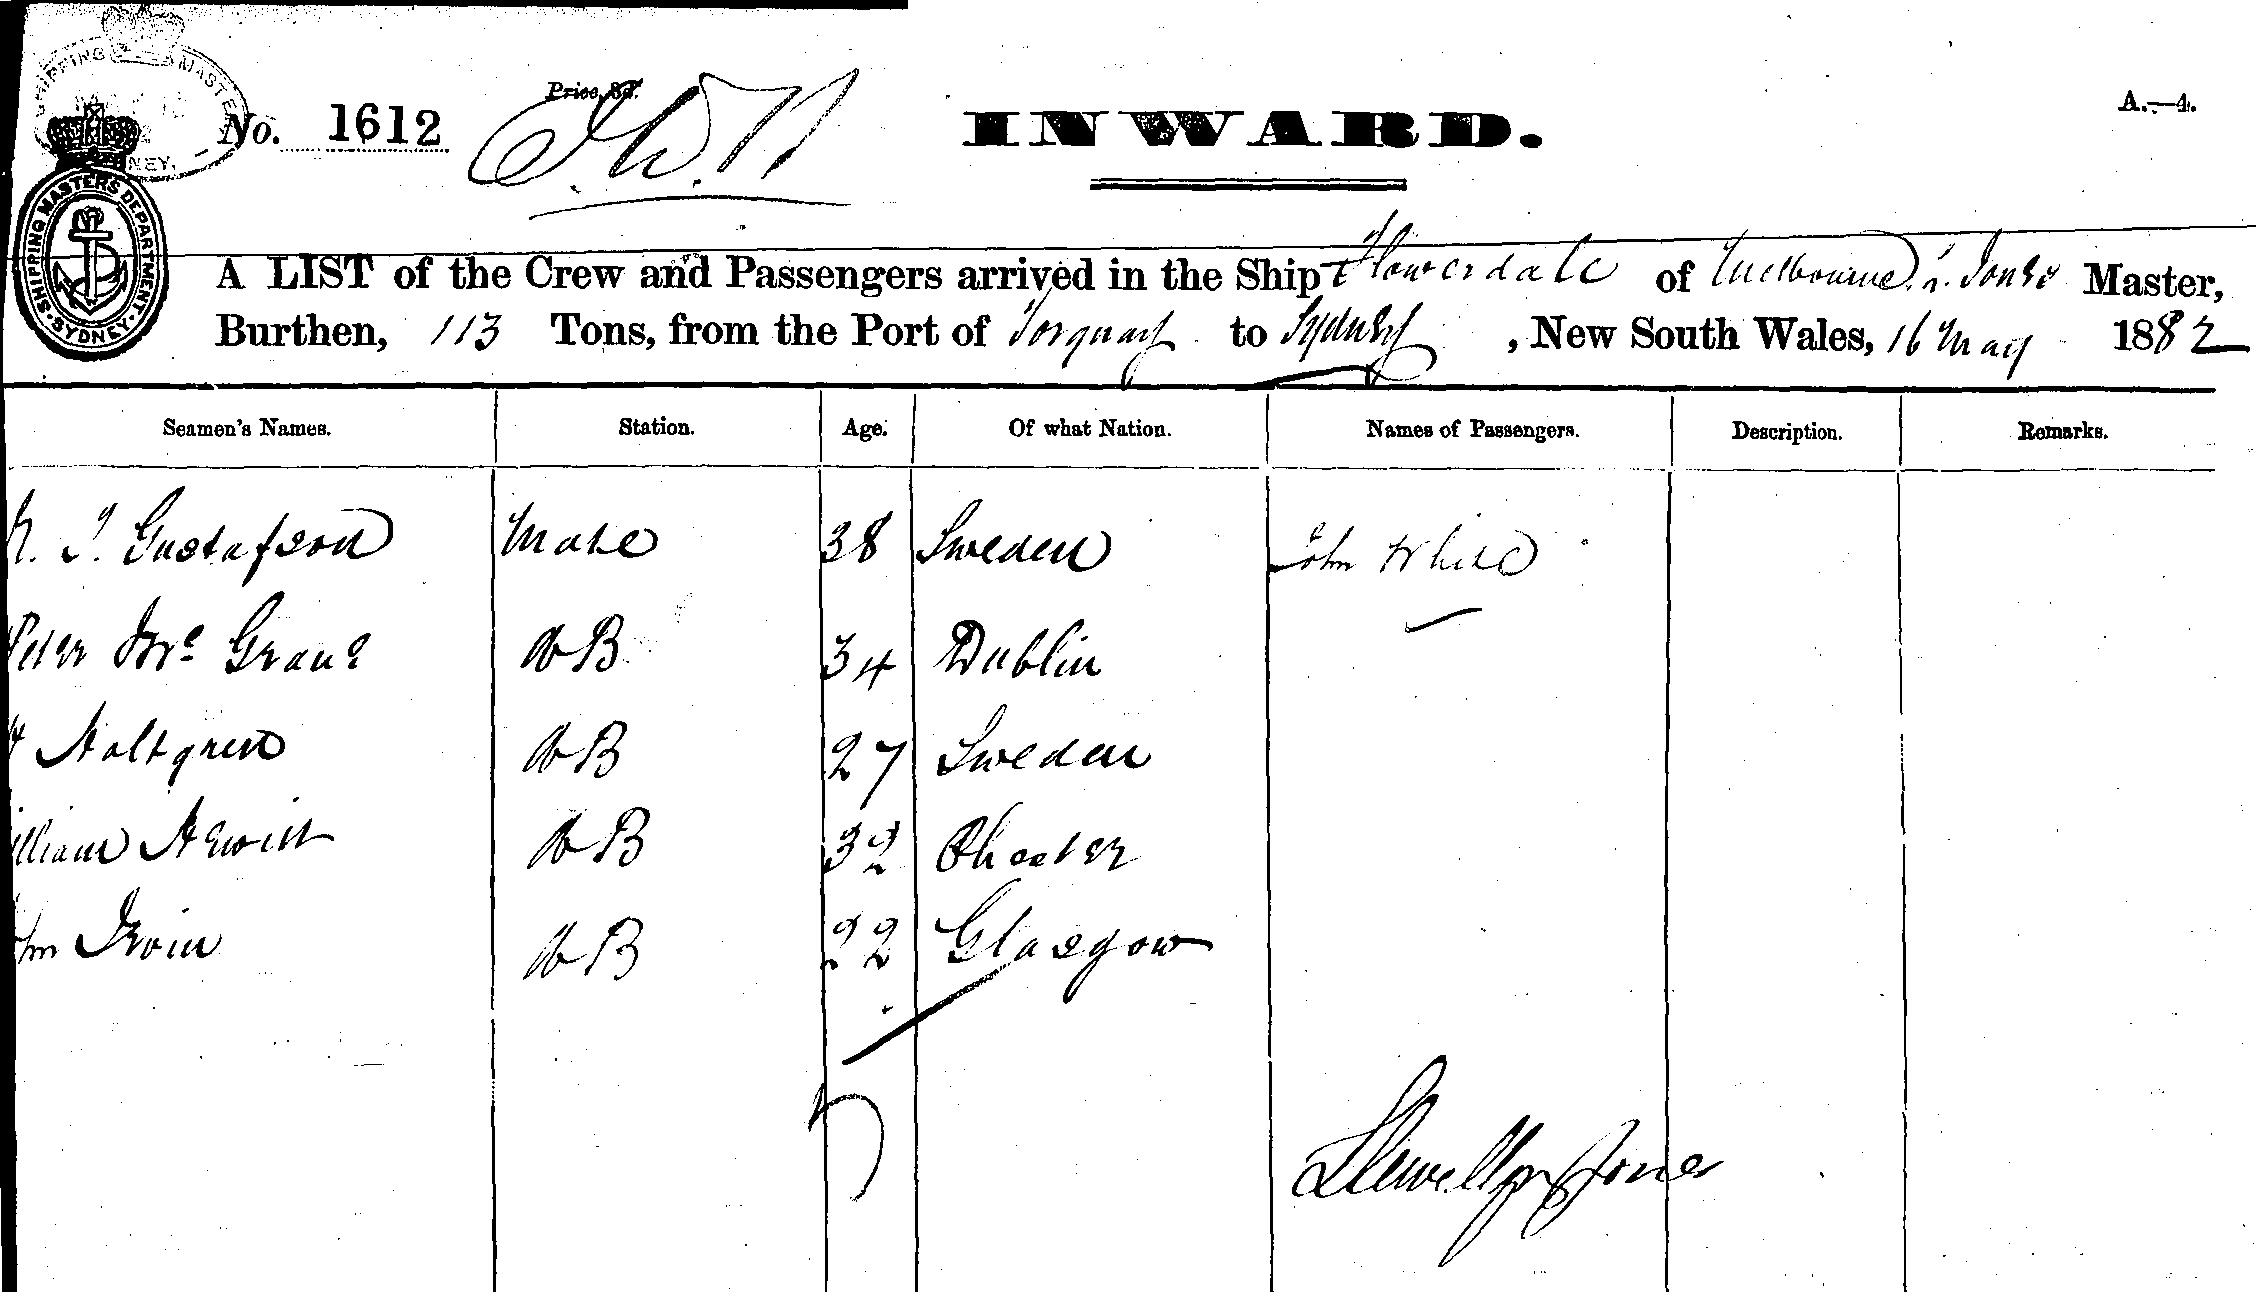 SHIPPING MASTER SYDNEY.
Price, 3d.
No. 1612
INWARD.
A.—4.
SHIPPING MASTERS DEPARTMENT · SYDNEY ·
A LIST of the Crew and Passengers arrived in the Ship Flowerdale of Melbourne L. Jones Master,
Burthen, 113 Tons, from the Port of Torquay to Sydney, New South Wales, 16 May 1882
Seamen's Names. Station. Age. Of what Nation. Names of Passengers. Description. Remarks.
Gustafson Mate 38 Sweden John White
Peter Mc Grane AB 34 Dublin
Holtgren AB 27 Sweden
illiam Hewitt AB 32 Chester
ohn Irvin AB 22 Glasgow
5
Llewellyn Jones